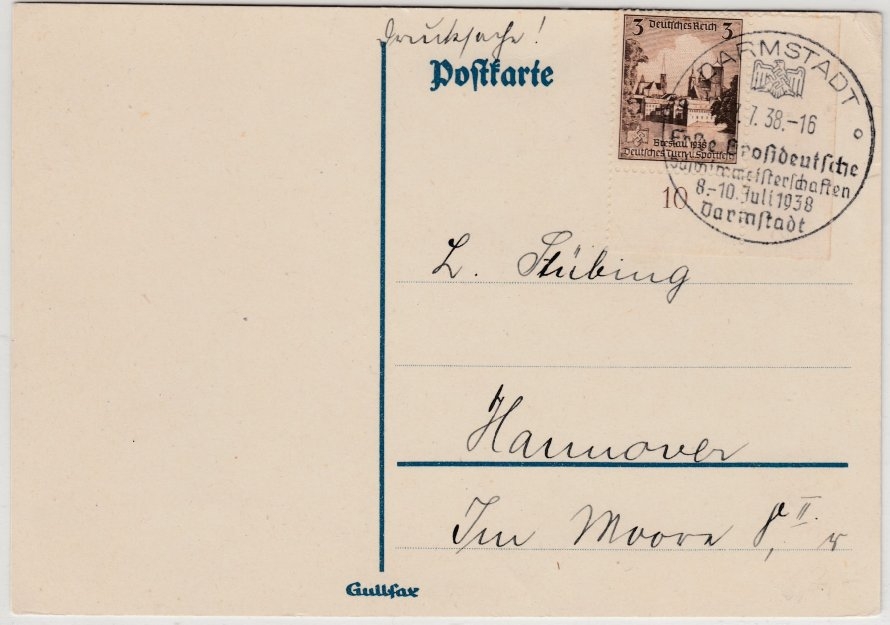 Drucksache!
Postkarte
3 Deutsches Reich 3
Breslau 1938
Deutsches Turn-u. Sportfest
10
DARMSTADT
7.38.-16
Erste Großdeutsche
8.-10. Juli 1938
Darmstadt
L. Stübing
Hannover
Im Moore 8, II. r
Gullfax